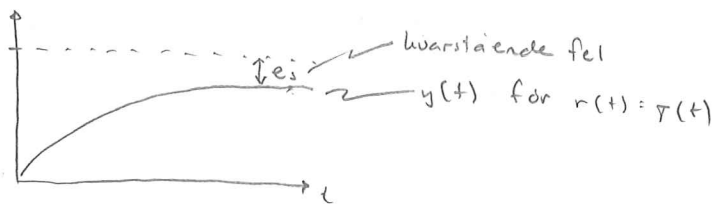 kvarstående fel
es
y(t) för r(t) = γ(t)
t